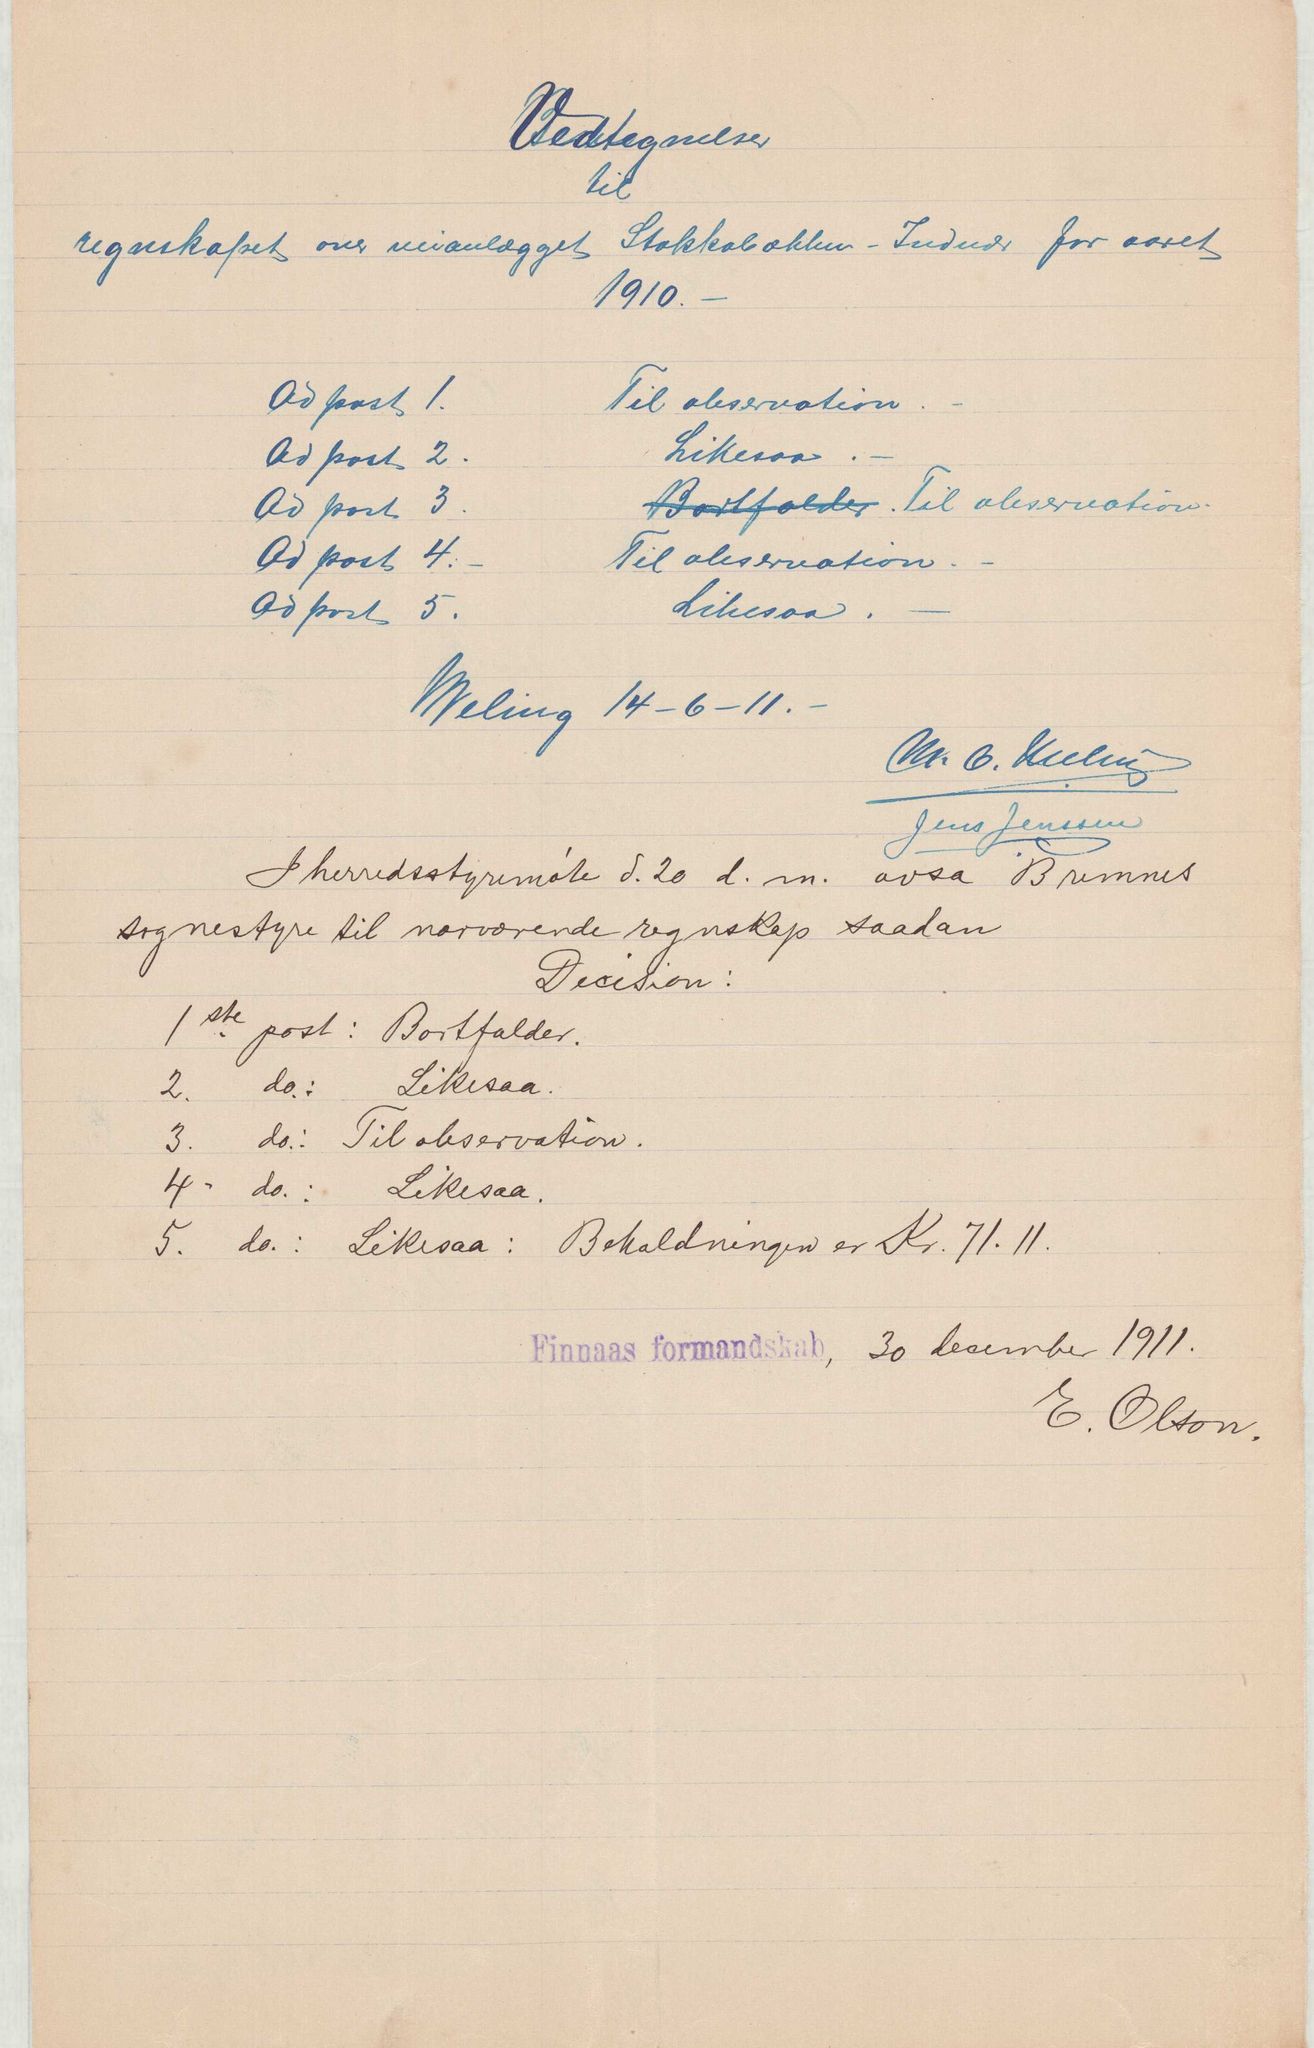 Vedtegnelser
til
regnskapet over veianlægget Stokkabækken - Indvær for aaret
1910. -
Ad post 1. Til observation. -
Ad post 2. Likesaa. -
Ad post 3. Bortfalder. Til observation.
Ad post 4. - Til observation. -
Ad post 5. Likesaa. -
Meling 14-6-11. -
M. O. Meling
Jens Jenssen
I herredsstyremöte d. 20 d. m. avsa Bremnes
sognestyre til nærværende regnskap saadan
Decision:
1ste post: Bortfalder.
2. do.: Likesaa.
3. do.: Til observation.
4- do.: Likesaa.
5. do.: Likesaa: Beholdningen er Kr. 71.11.
Finnaas formandskab, 30 desember 1911.
E. Olson.